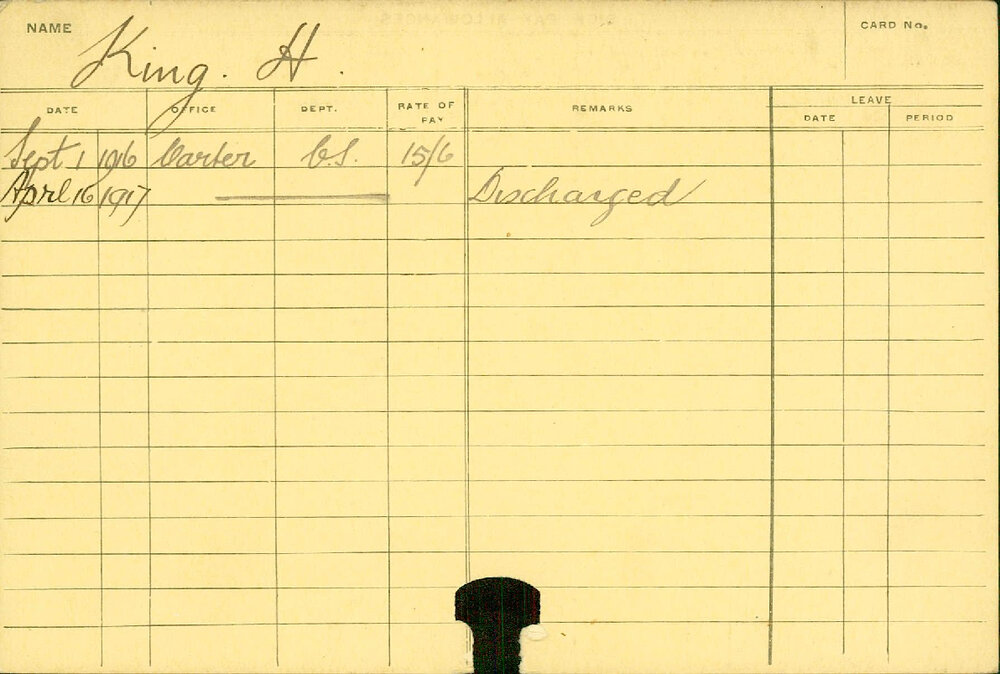 NAME King. H. CARD No.
DATE OFFICE DEPT. RATE OF PAY REMARKS LEAVE
DATE PERIOD
Sept 1 1916 Carter C.S. 15/6
April 16 1917 Discharged